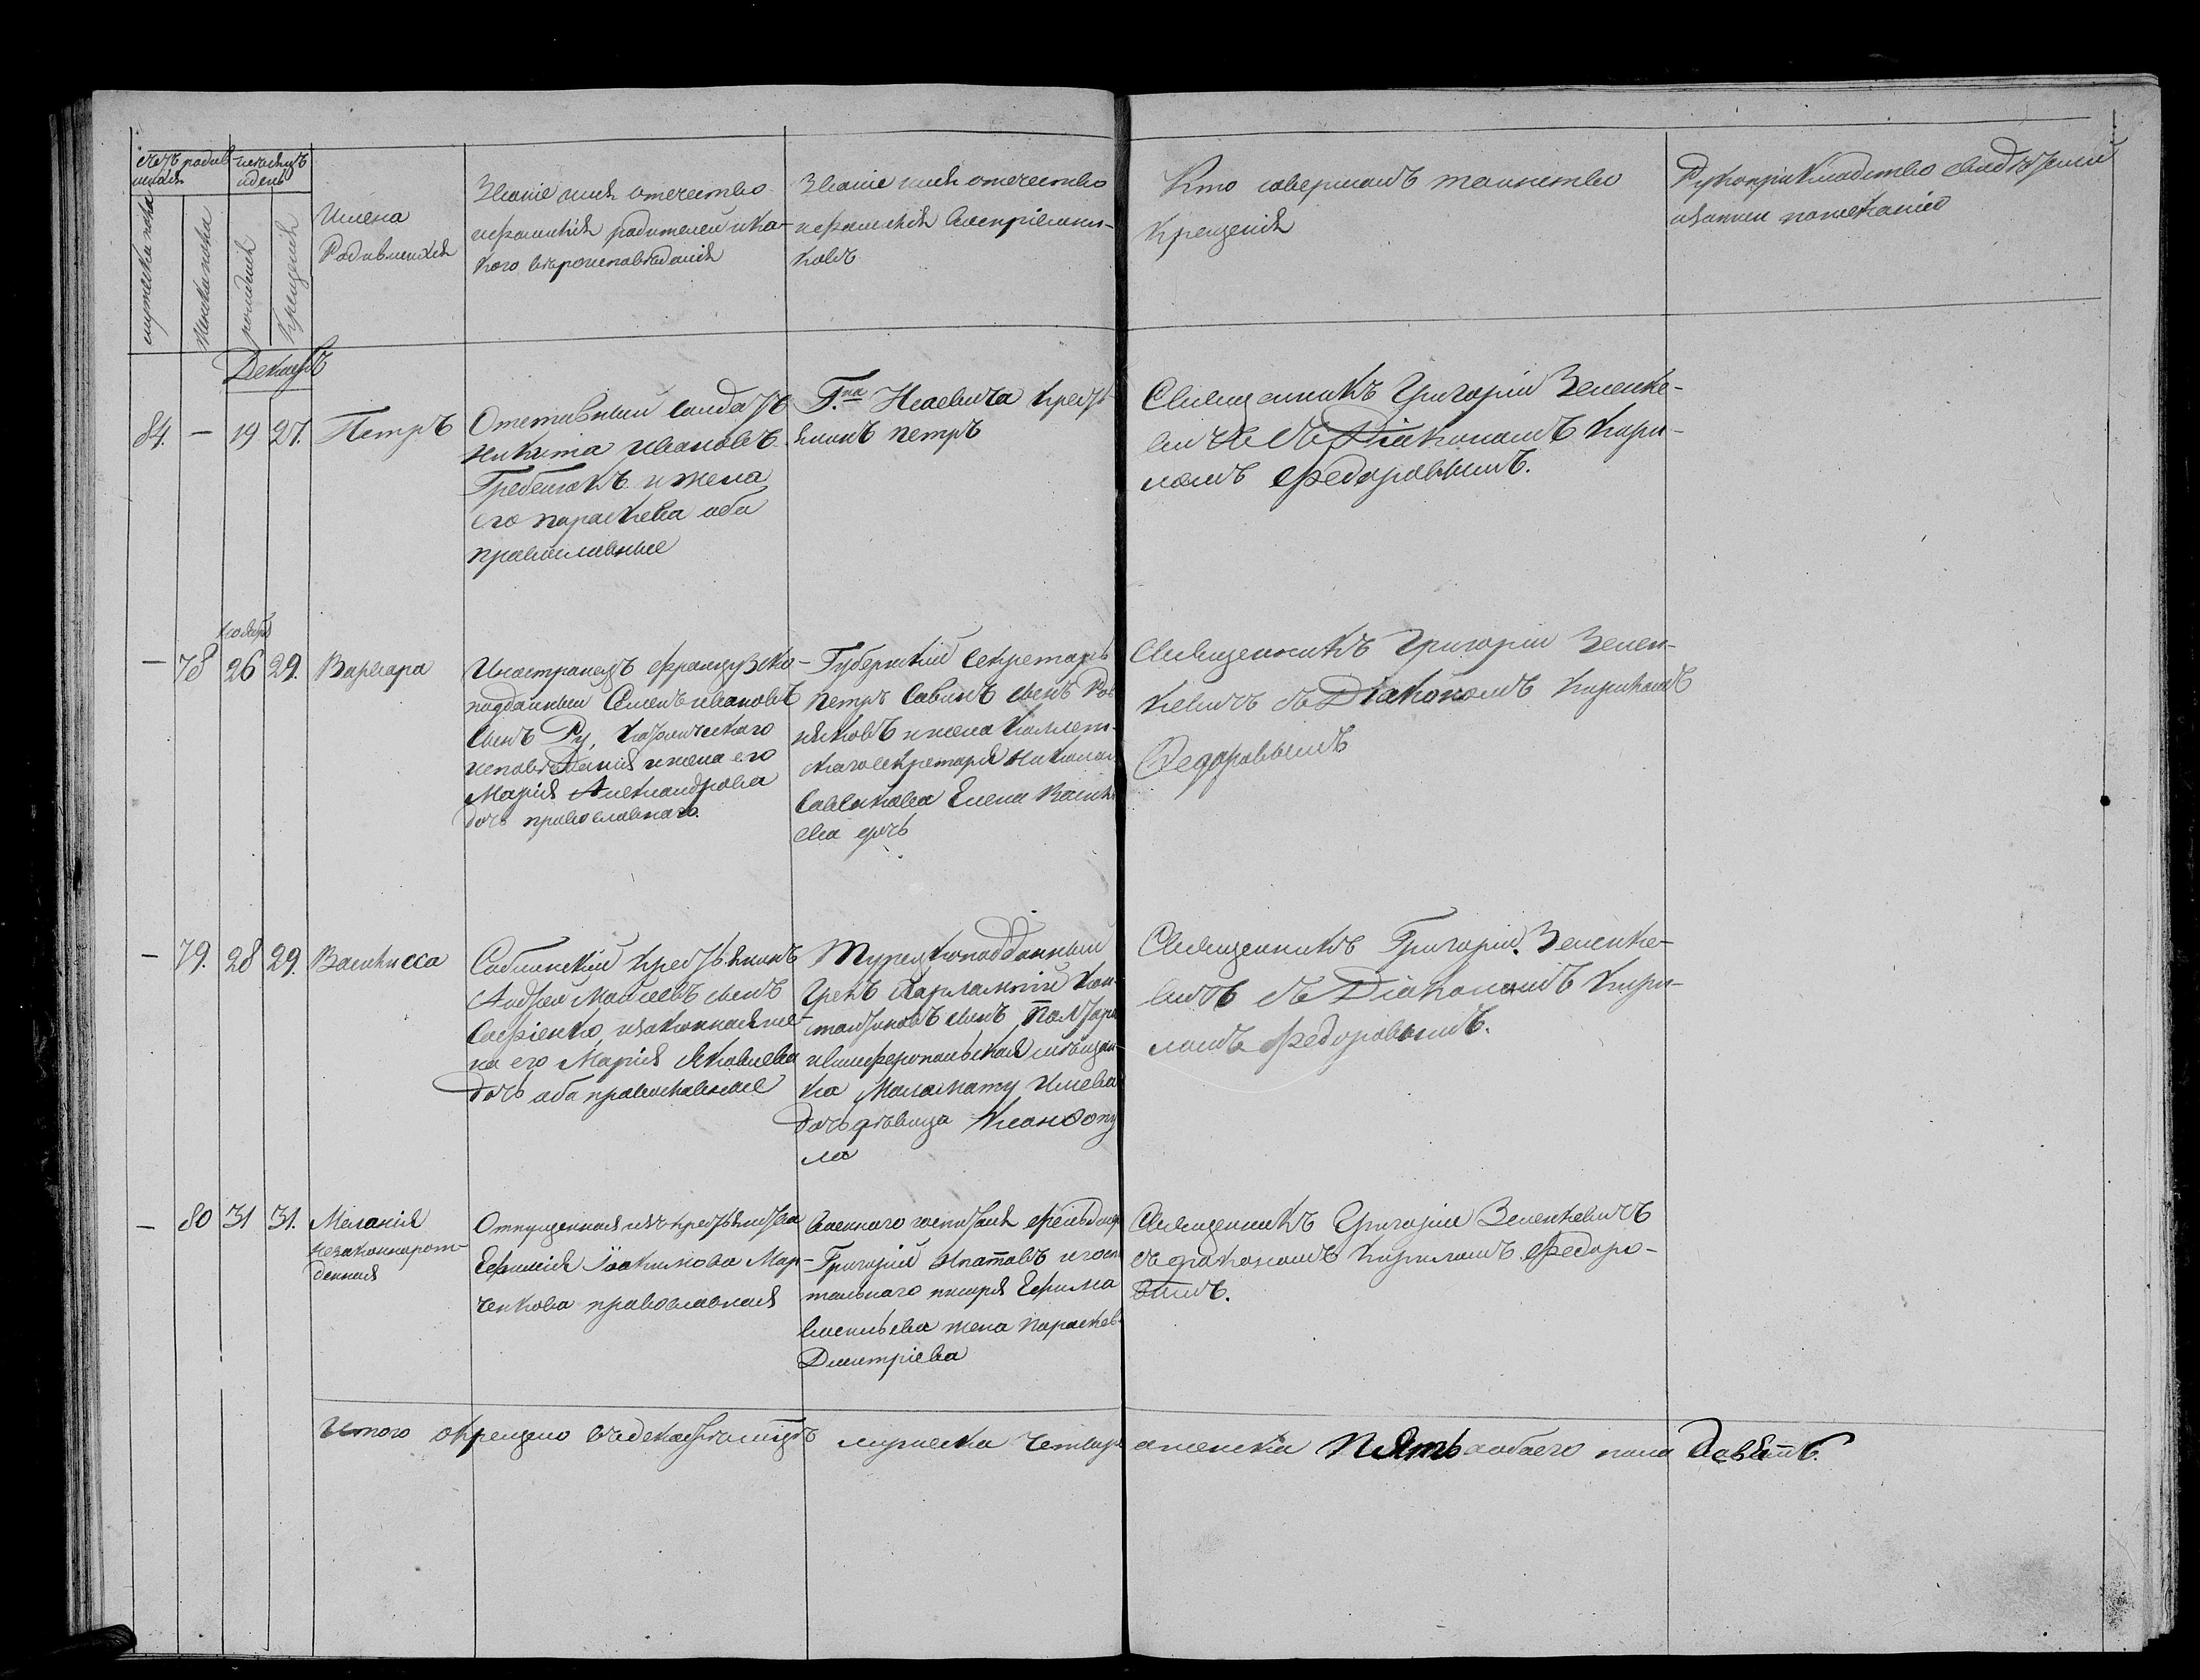 счетъ родив- мѣсяцъ
шихся и день
мужеска пола
женска пола
рожденія
крещенія
Имена
Родившихся
Званіе имя отечество
и фамилія родителей и ка-
кого вѣроисповѣданія
Званіе имя отечество
и фамилія воспріемни-
ковъ
Кто совершалъ таинство
крещенія
Рукоприкладство свидѣтелей
записи по желанію
Декабрь
84. — 19 27. Петръ
Отставный солдатъ
Никита Ивановъ
Гребенюкъ и жена
его Параскева оба
православные
Г.на Исаевича крестья-
янинъ Петръ
Священникъ Григорій Зеленке-
вичъ съ Діакономъ Кири-
ломъ Федоровымъ.
Ноября
— 78 26 29. Варвара
Иностранецъ Французско-
подданный Семенъ Ивановъ
сынъ Ру, Католическаго
исповѣданія и жена его
Марія Александрова
дочь православнаго.
Губернскій Секретарь
Петръ Савинъ сынъ
и жена Коллеж-
скаго секретаря Николая
Савлукова Елена
ева дочь
Священникъ Григорій Зелен-
кевичъ съ Діакономъ Кириломъ
Федоровымъ
— 79. 28 29. Василисса
Саблинскій крестьянинъ
Андрей Моисеевъ сынъ
Софіенко, и законная же-
на его Марія Яковлева
дочь оба православные
Турецкоподданный
Грекъ Харлампій Кон-
стантиновъ сынъ
и Симферопольская мѣщан-
ка Маламату Ильева
дочь дѣвица Ксандопу
ло
Священникъ Григорій Зеленке-
вичъ съ Діакономъ Кири-
ломъ Федоровымъ.
— 80 31 31. Меланія
незаконнорож-
денная
Отпущенная изъ крестьянства
Ефимія Іоакимова Мар-
ченкова православная
Военнаго госпиталя фельдшеръ
Григорій Игнатовъ и госпи
тальнаго писаря Ефима
Васильева жена Параскева
Дмитріева
Священникъ Григорій Зеленкевичъ
съ діакономъ Кириломъ Федоро-
вымъ.
Итого окрещено въ декабрѣ мѣсяцѣ мужеска четыре а женска пять а обоего пола девять.